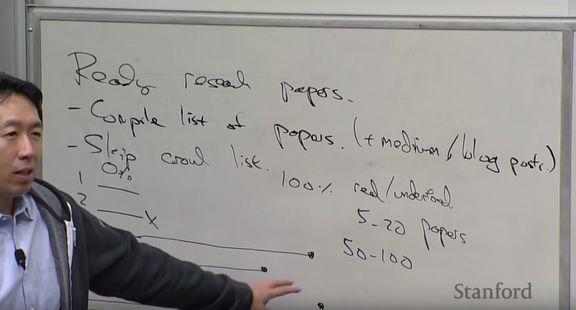 Ready reseach papers.
- Compile list of papers. (+ medium/blog posts.)
- Skip around list.
0%
100% read/understand.
1
2 X
5-20 papers
50-100
Stanford